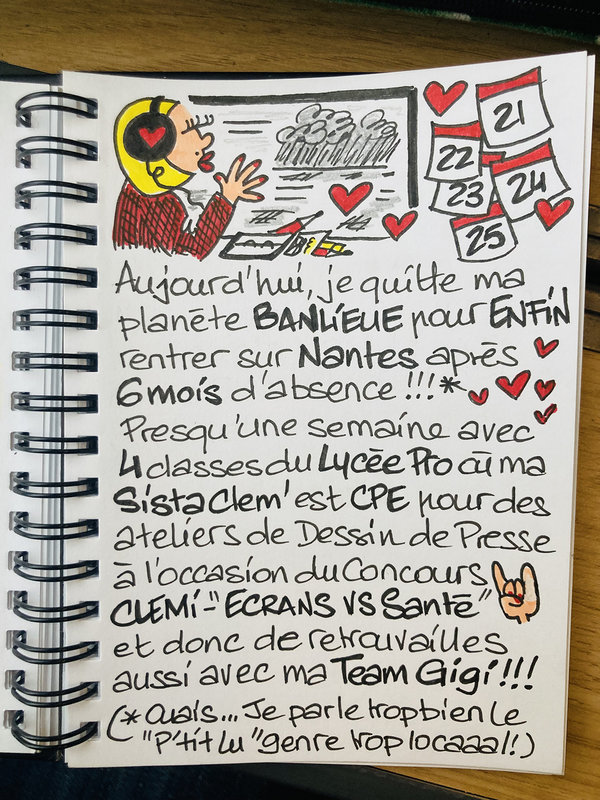 21
22
23
24
25
Aujourd'hui, je quitte ma
planète BANLIEUE pour ENFIN
rentrer sur Nantes après
6 mois d'absence !!!*
Presqu'une semaine avec
4 classes du Lycée Pro où ma
Sista Clem' est CPE pour des
ateliers de Dessin de Presse
à l'occasion du Concours
CLEMI-"ECRANS VS Santé"
et donc de retrouvailles
aussi avec ma Team Gigi!!!
(*Ouais... Je parle trop bien le
"P'tit Lu" genre trop locaaal!)